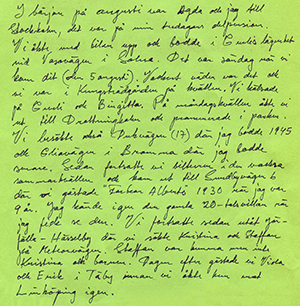 I början på augusti var Agda och jag till
Stockholm, det var på min tvådagars delpension
Vi åkte med bilen upp och bodde i Gunlis lägenhet
vid Vasavägen i Solna. Det var söndag när vi
kom dit (den 5 augusti). Vackert väder var det och
vi var i Kungsträdgården på kvällen. Vi hälsade
på Gunli och Birgitta. På måndagskvällen åkte vi
ut till Drottningholm och promenerade i parken.
Vi besökte också Dukvägen (17) där jag bodde 1945
och Gliavägen i Bromma där jag bodde
senare. Sedan fortsatte vi bilturen i den vackra
sommarkvällen och kom ut till Sundbyvägen 6
där vi gästade Farbror Albert 1930 när jag var
9 år. Jag kände igen den gamla 20-talsvillan när
jag fick se den. Vi fortsatte sedan utåt
Hässelby där vi sökte Kristina och Staffan
på vägen. Staffan var hemma men inte
Kristina och barnen. Dagen efter gästade vi Viola
och Erik i Täby innan vi åkte hem mot
Linköping igen.